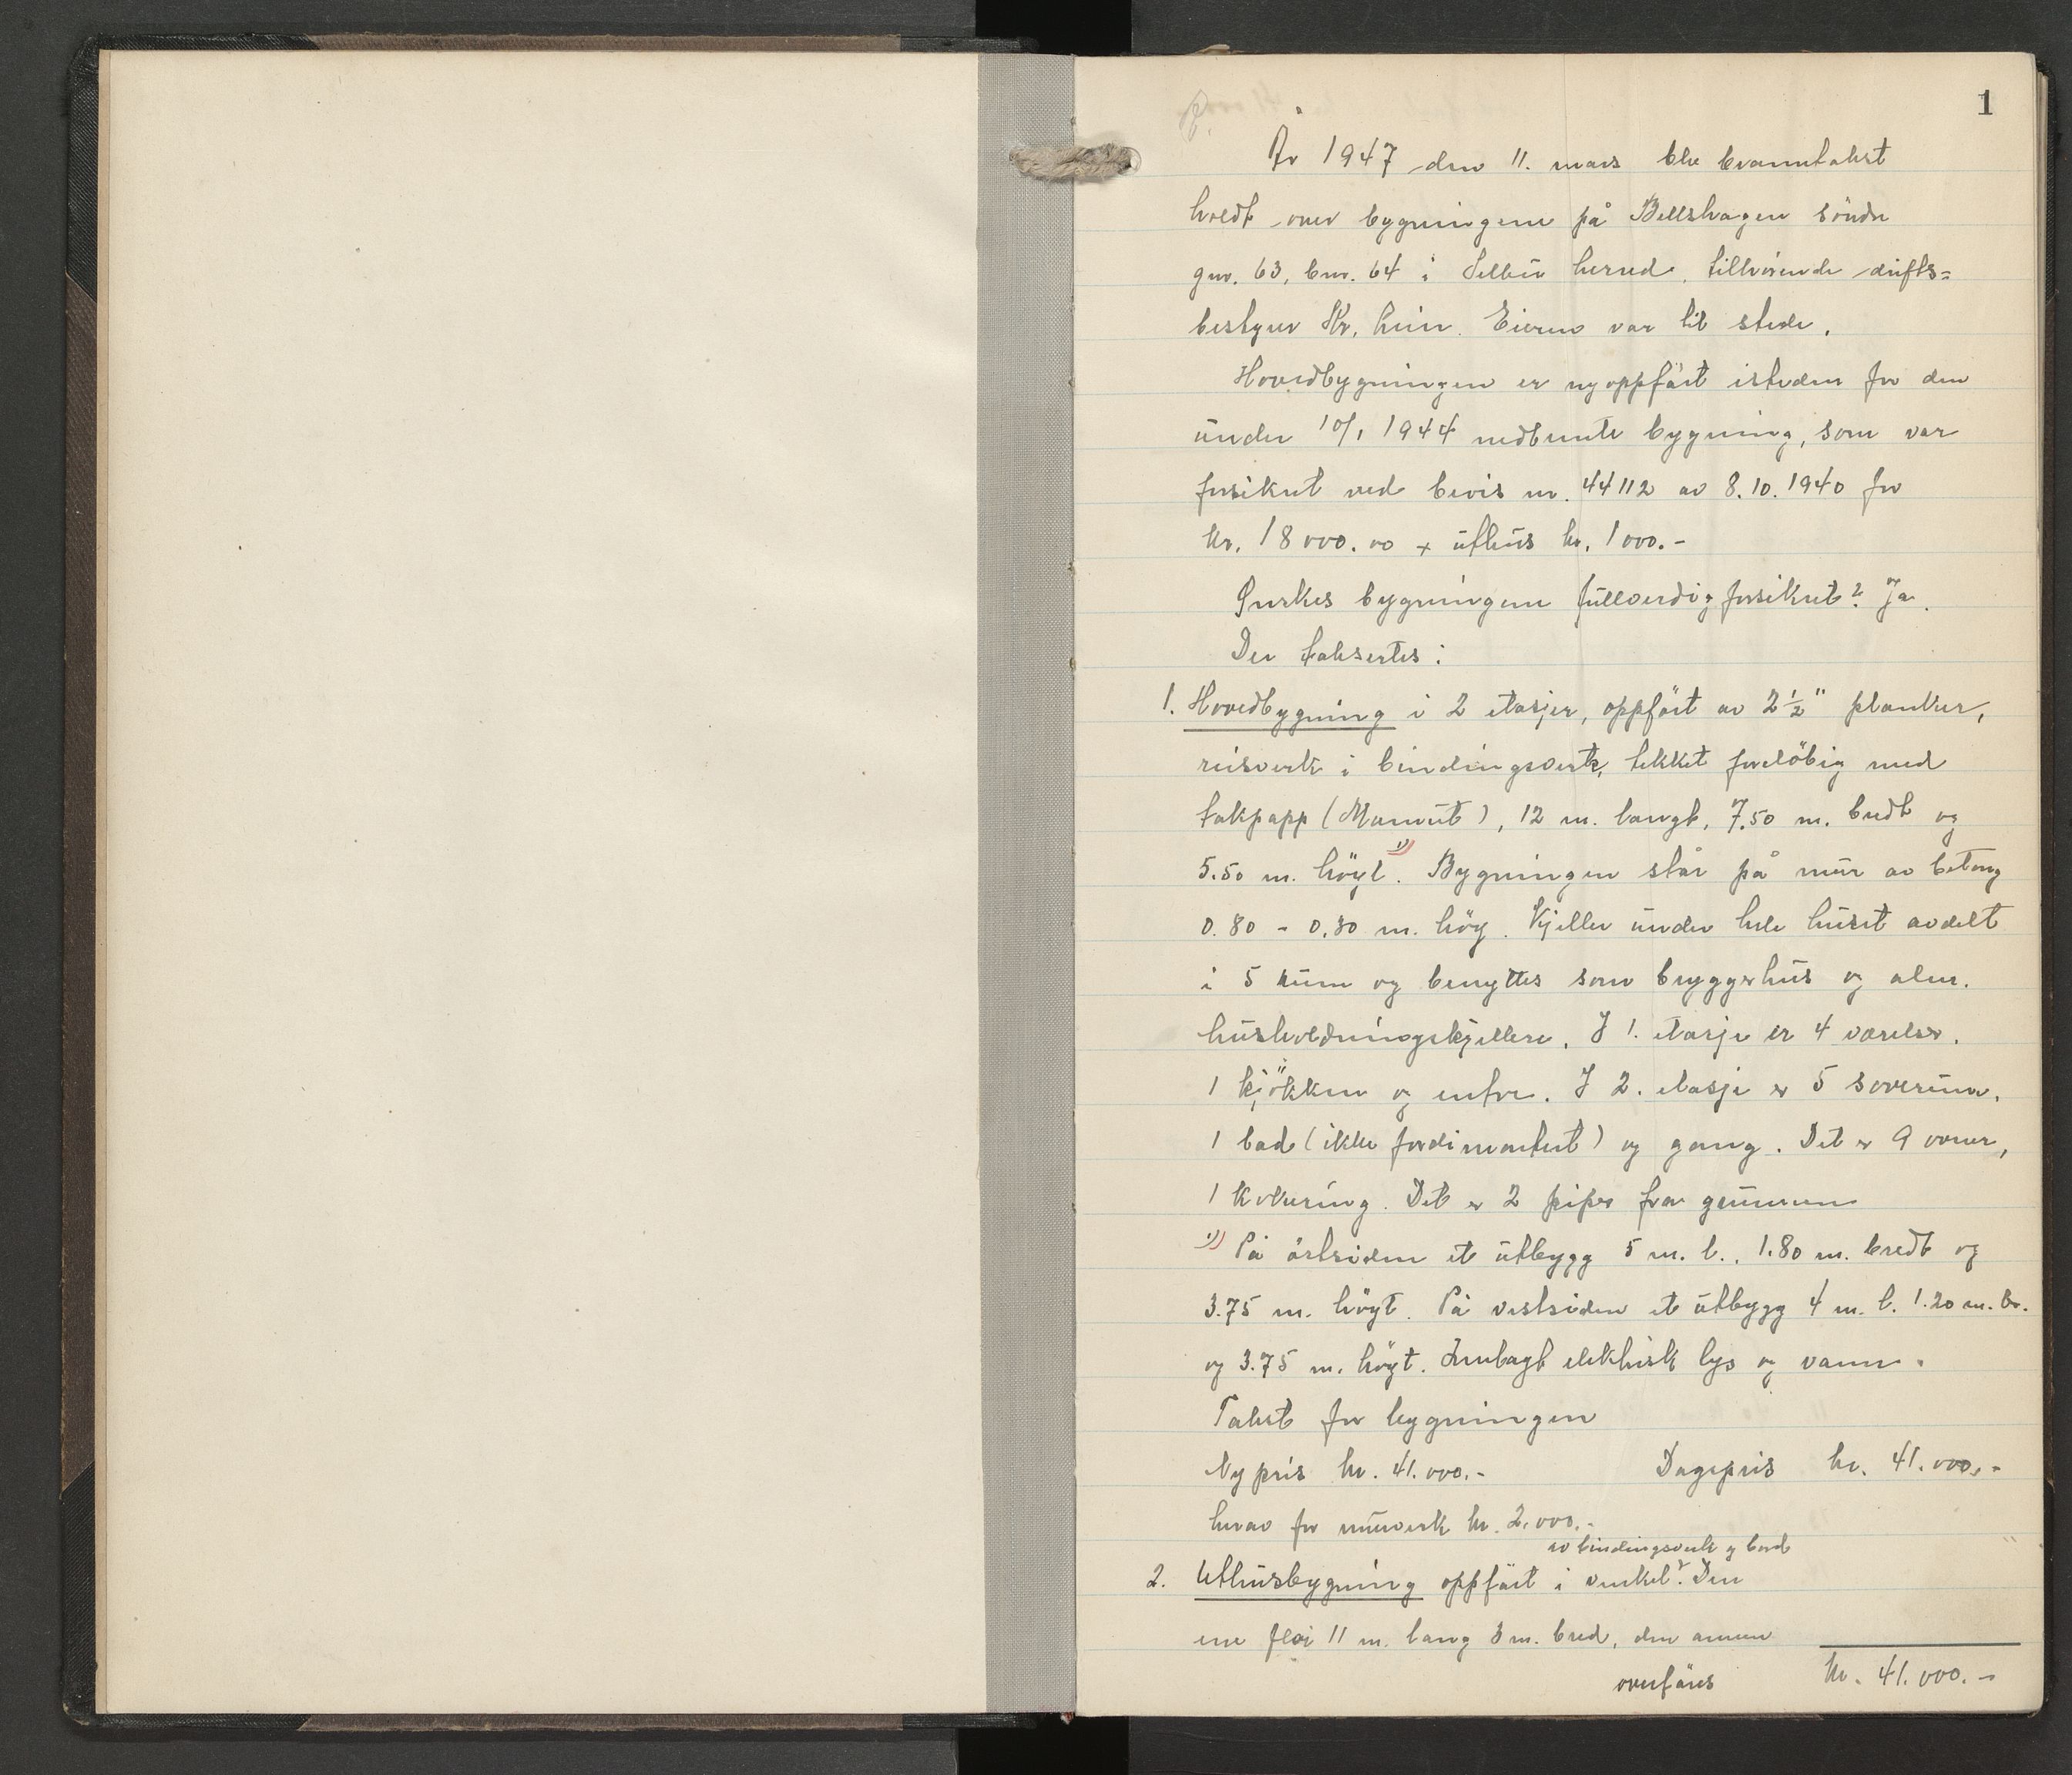 1
År 1947 den 11. mars ble branntakst
holdt over bygningene på Bellshagen söndre
gnr. 63, bnr. 64 i Selbu herred, tilhörende drifts=
bestyrer Kr. Eieren var til stede.
Hovedbygningen er nyoppfört isteden for den
under 10/1 1944 nedbrente bygning, som var
forsikret ved bevis nr. 44112 av 8.10.1940 for
kr. 18000.00 + uthus kr. 1000.-
Önskes bygningene fullverdig forsikret? Ja.
Der taksertes:
1. Hovedbygning i 2 etasjer, oppfört av 2 1/2" planker,
reisverk i bindingsverk, tekket forelöbig med
takpapp (Mamut), 12 m. langt, 7.50 m. bredt og
5.50 m. höyt. 1) Bygningen står på mur av betong
0.80 - 0.30 m. höy. Kjeller under hele huset avdelt
i 5 rum og benyttes som bryggerhus og alm.
husholdningskjellere. I 1. etasje er 4 værelser,
1 kjökken og entre. I 2. etasje er 5 soverum,
1 bad (ikke ferdimontert) og gang. Det er 9 ovner,
1 kokering. Det er 2 piper fra grunnen
1) På östsiden et utbygg 5 m. l., 1.80 m. bredt og
3.75 m. höyt. På vestsiden et utbygg 4 m. l. 1.20 m. br.
og 3.75 m. höyt. Innlagt elektrisk lys og vann.
Takst for bygningen
Nypris kr. 41.000.- Dagspris kr. 41.000.-
herav for murverk kr. 2.000.-
av bindingsverk og bord
2. Uthusbygning oppfört i vinkel. Den
ene flöi 11 m. lang 3 m. bred, den annen
overföres kr. 41.000.-